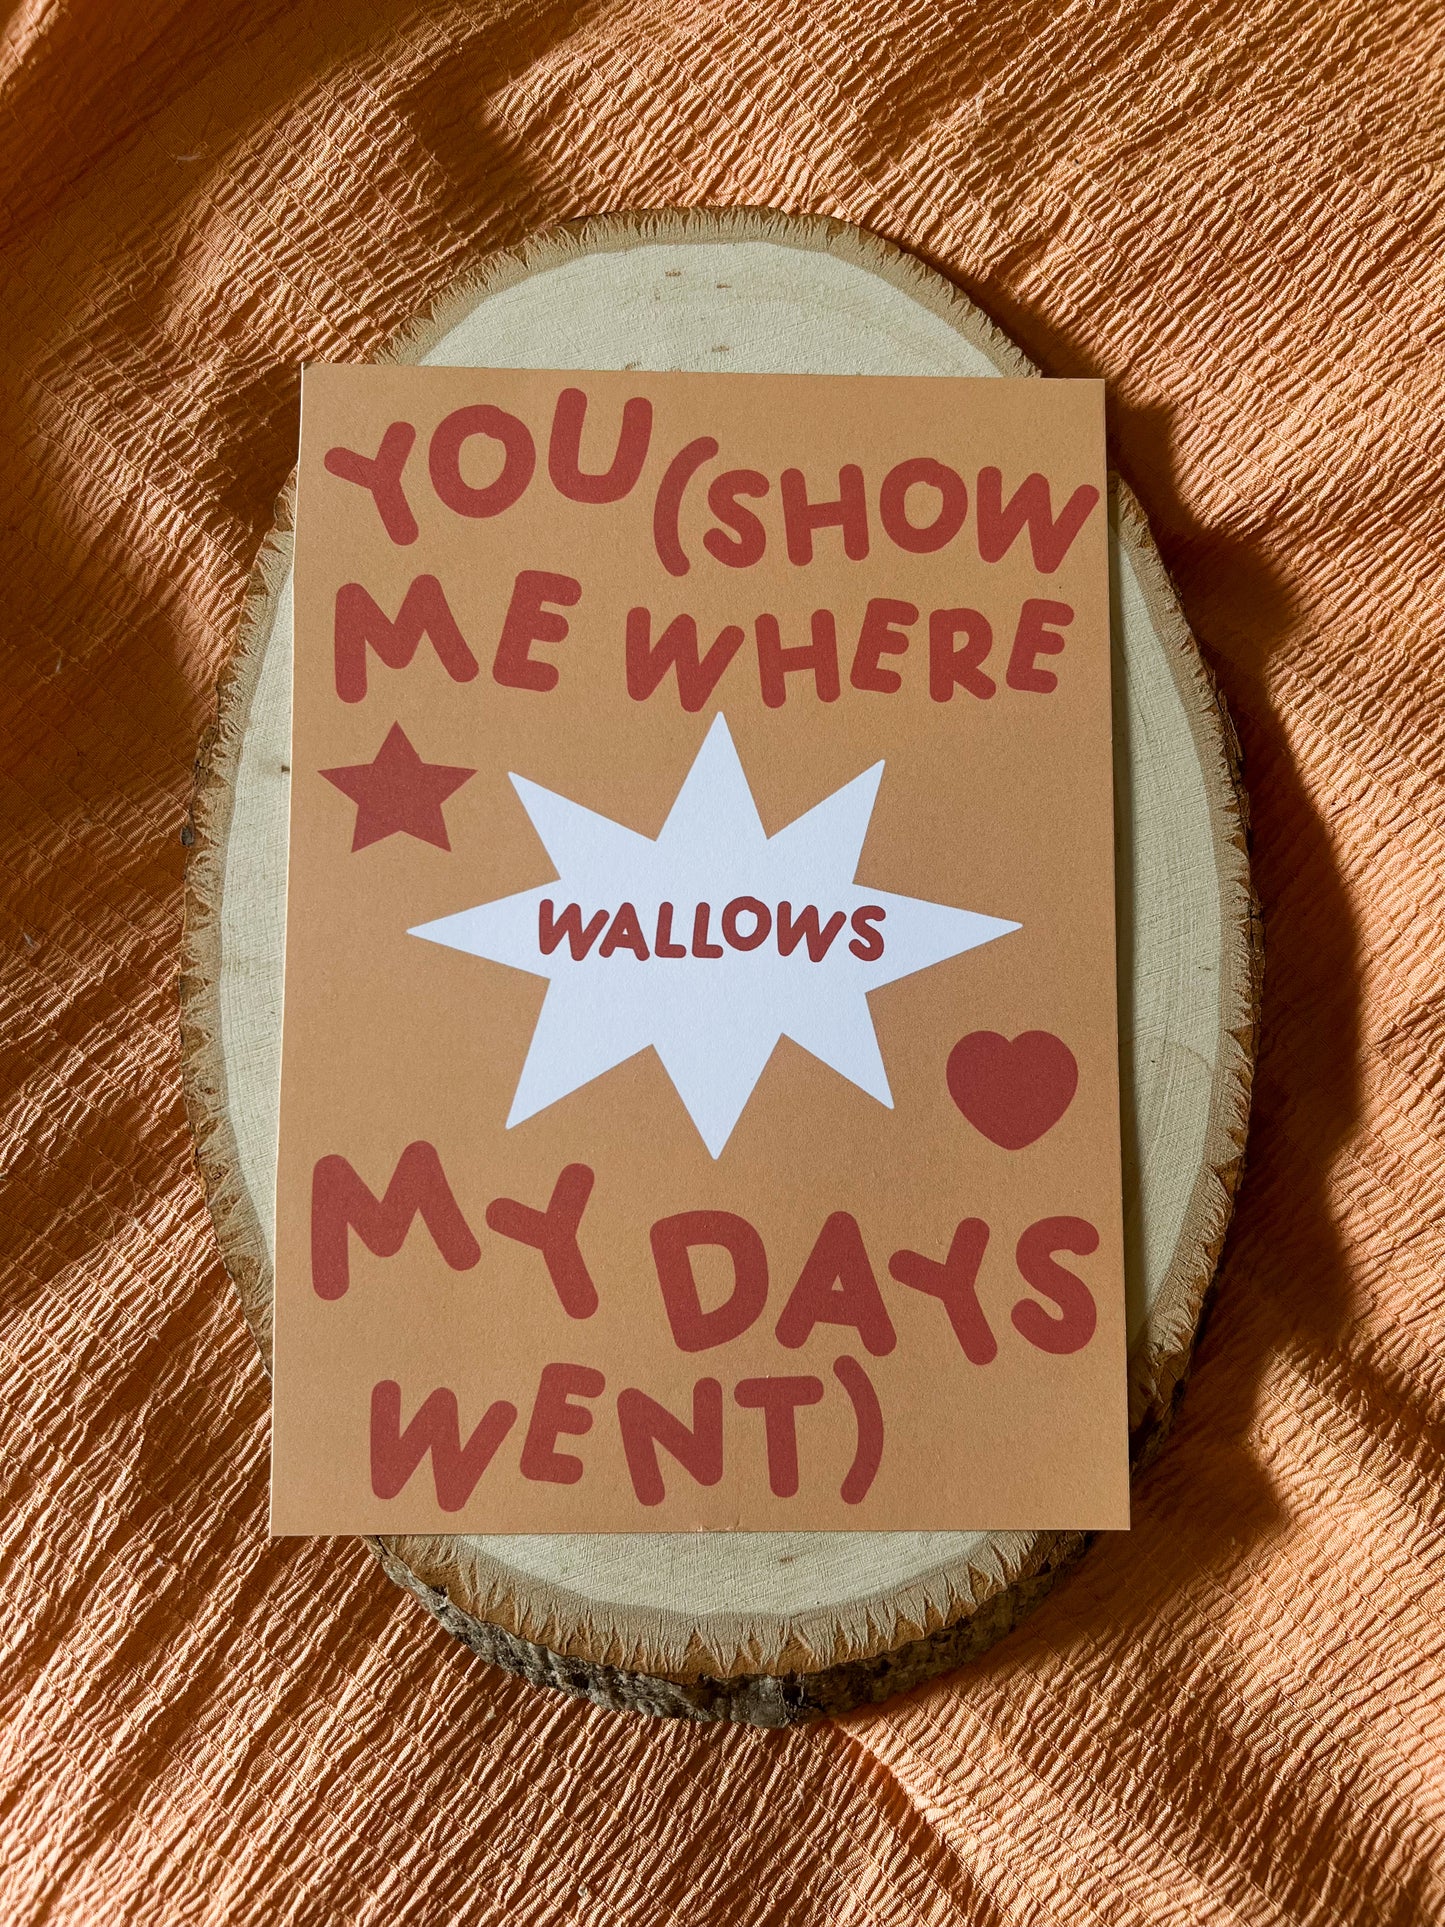 YOU (SHOW
ME WHERE
WALLOWS
MY DAYS
WENT)